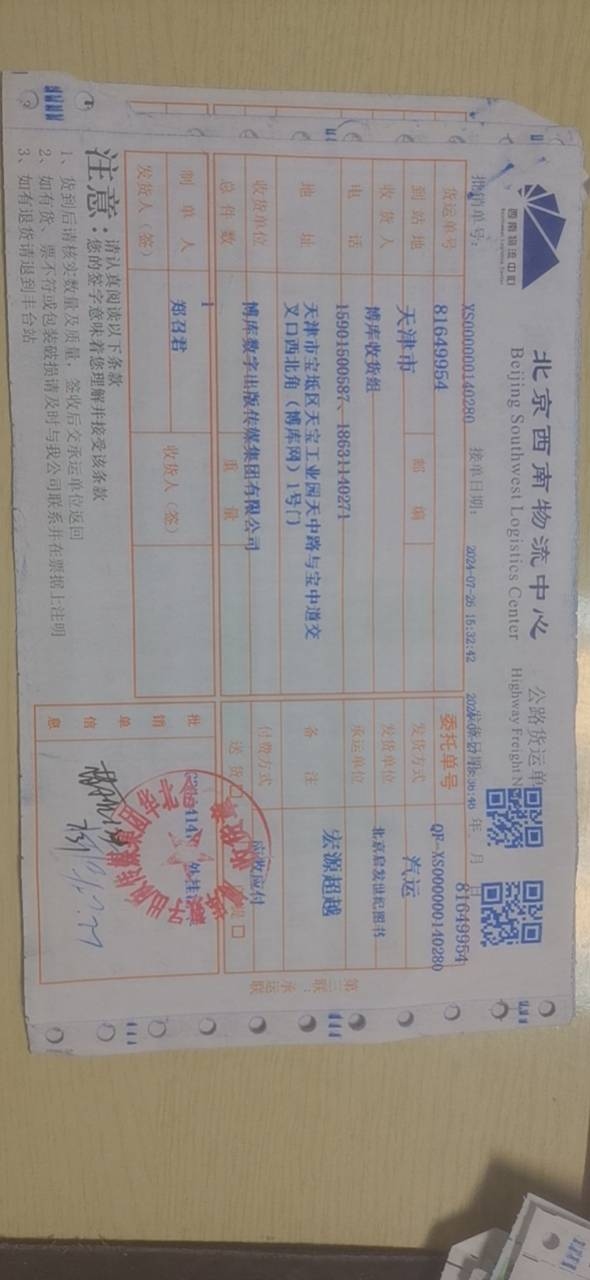 西南物流中心
北京西南物流中心
Beijing Southwest Logistics Center
公路货运单
Highway Freight N
批销单号:
XS000000140280
接单日期:
2024-07-26 15:32:42
年 月 日
81649954
货运单号
81649954
委托单号
QF-XS000000140280
到站地
天津市
邮 编
发货方式
汽运
收货人
博库收货组
发货单位
北京启发世纪图书
电 话
15901500587、18631140271
承运单位
地 址
天津市宝坻区天宝工业园天中路与宝中道交
叉口西北角(博库网)1号门
备 注
宏源超越
收货单位
博库数字出版传媒集团有限公司
付费方式
应收应付
总件数
1
重 量
送 货
制单人
郑召君
收货人(签)
发货人(签)
批销单信息
第三联:承运联
注意:
请认真阅读以下条款
您的签字意味着您理解并接受该条款
1、货到后请核实数量及质量,签收后交承运单位返回
2、如有货、票不符或包装破损请及时与我公司联系并在票据上注明
3、如有退货请退到丰台站